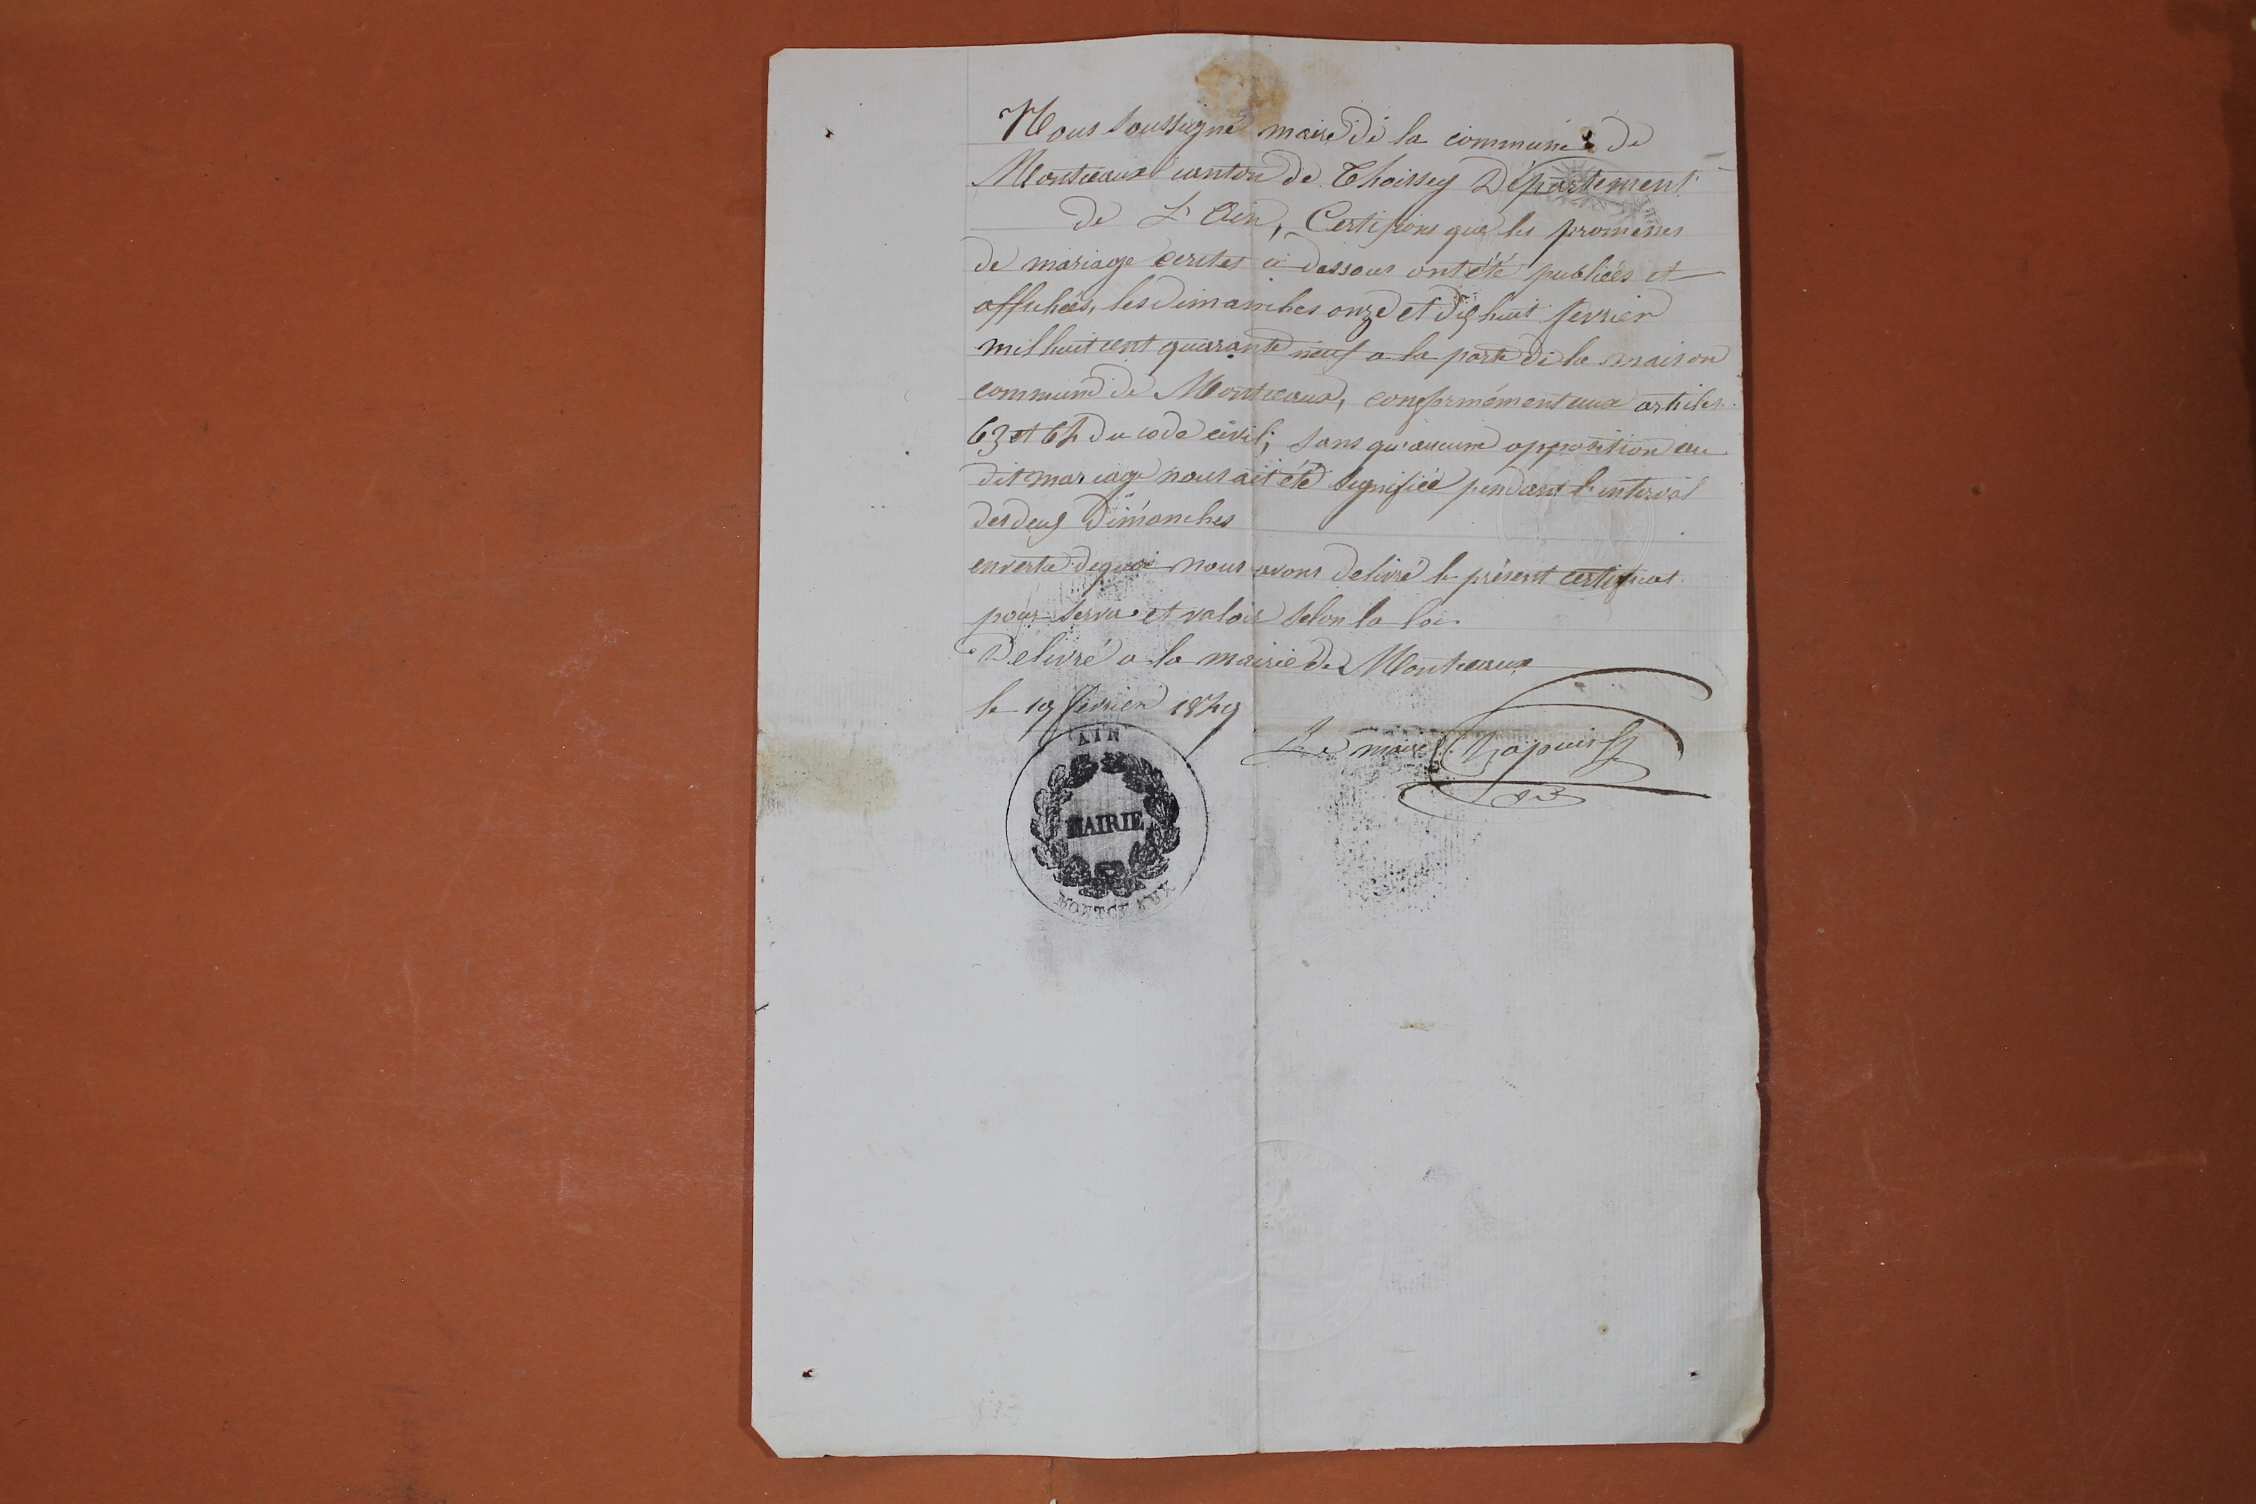 Nous soussigné maire de la commune de
Montceaux canton de Thoissey Département
de L'Ain, Certifions que les promesses
de mariage ecrites ci dessous ont été publiées et
affichées, les dimanches onze et dix huit fevrier
mil huit cent quarante neuf a la porte de la maison
commune de Montceaux, conformément aux articles
63 et 64 du code civil; sans qu'aucune opposition au
dit mariage nous ait été signifiée pendant l'interval
des deux dimanches
en vertu de quoi nous avons delivré le présent certificat
pour servir et valoir selon la loi
Delivré a la mairie de Montceaux
le 19 fevrier 1849
Le maire
AIN
MAIRIE
MONTCEAUX